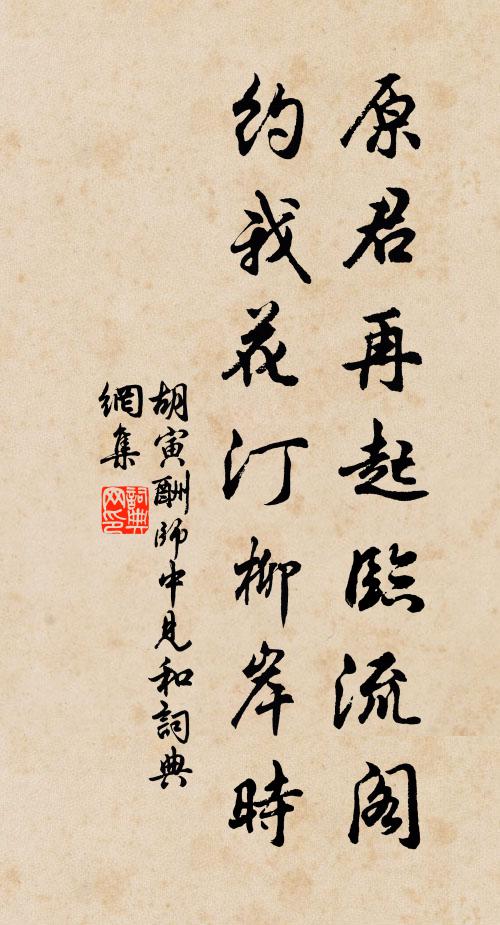 原君再起臨流阁
约我花汀柳岸時
胡寅酬師中見和詞典
網集
詞典网印